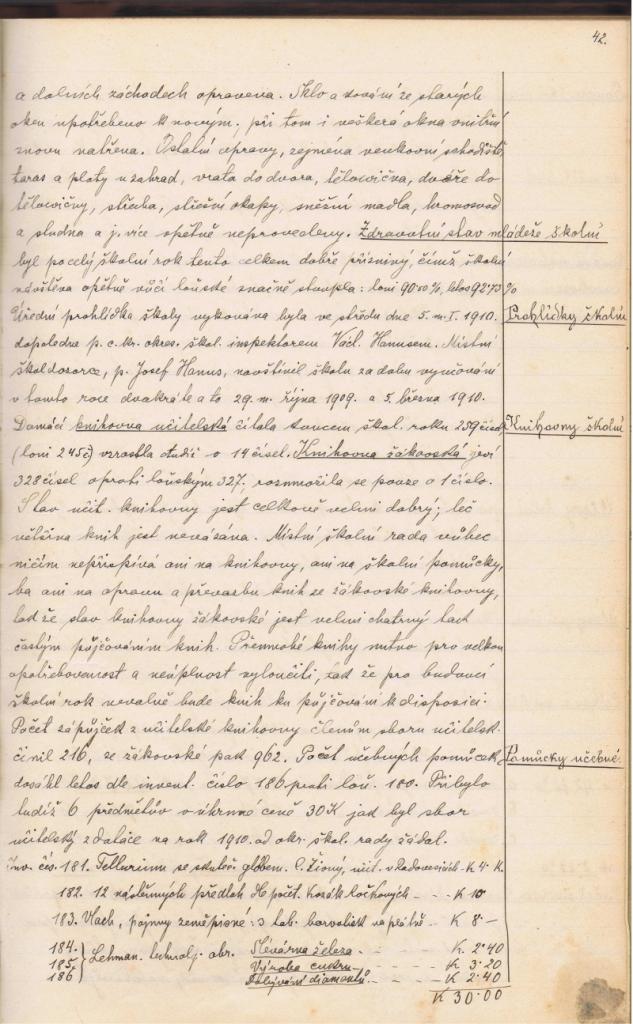 42.
a dolních záchodech opravena. Sklo a kování ze starých
oken upotřebeno k novým, při tom i veškerá okna vnitřní
znovu natřena. Ostatní opravy, zejména venkovní schodiště,
taras a ploty u zahrad, vrata do dvora, tělocvična, dveře do
tělocvičny, střecha, střešní okapy, sněžní madla, hromosvod
a studna a j. více opětně neprovedeny. Zdravotní stav mládeže školní
byl po celý školní rok tento celkem dobře příznivý, čímž školní
návštěva opětně vůči loňské značně stoupla: loni 90·50%, letos 92·73%
Úřední prohlídka školy vykonána byla ve středu dne 5. m. I. 1910.
Prohlídky školní
dopoledne p. c. kr. okres. škol. inspektorem Václ. Hanusem. Místní
škol dozorce, p. Josef Hanus, navštívil školu za dobu vyučování
v tomto roce dvakráte a to 29. m. října 1909. a 5. března 1910.
Domácí knihovna učitelská čítala koncem škol. roku 259 čísel
Knihovny školní
(loni 245 č) vzrostla tudíž o 14 čísel. Knihovna žákovská jeví
328 čísel oproti loňským 327, rozmnožila se pouze o 1 číslo.
Stav učit. knihovny jest celkově velmi dobrý; leč
většina knih jest nevázána. Místní školní rada vůbec
ničím nepřispívá ani na knihovny, ani na školní pomůcky,
ba ani na opravu a převazbu knih ze žákovské knihovny,
takže stav knihovny žákovské jest velmi chatrný tact
častým půjčováním knih. Přemnohé knihy nutno pro velkou
opotřebovanost a neúplnost vyloučiti, tak že pro budoucí
školní rok nevalně bude knih ku půjčování k disposici.
Počet zápůjček z učitelské knihovny členům sboru učitelsk.
činil 216, ze žákovské pak 962. Počet učebných pomůcek
Pomůcky učebné.
dosáhl letos dle invent. číslo 186 proti loň. 180. Přibylo
tudíž 6 předmětův v úhrnné ceně 30 K jak byl sbor
učitelský z dotace na rok 1910. od okr. škol. rady žádal.
Inv. čís. 181. Tellurium se skuteč. globem. C. Žižný, učit. v Radovesicích - K 4· K.
182. 12 nástěnných předloh počet. Kozák Ročkových - - - K 10·
183. Vlach, pojmy zeměpisné: 3 tab. barvotisk na plátně - K 8·-
184. Lehman. technolj. obr. Slévárna železa - - - K 2·40
185. Výroba cukru - - - K 3·20
186 Dobývání diamantů. - - - K 2·40
K 30·00